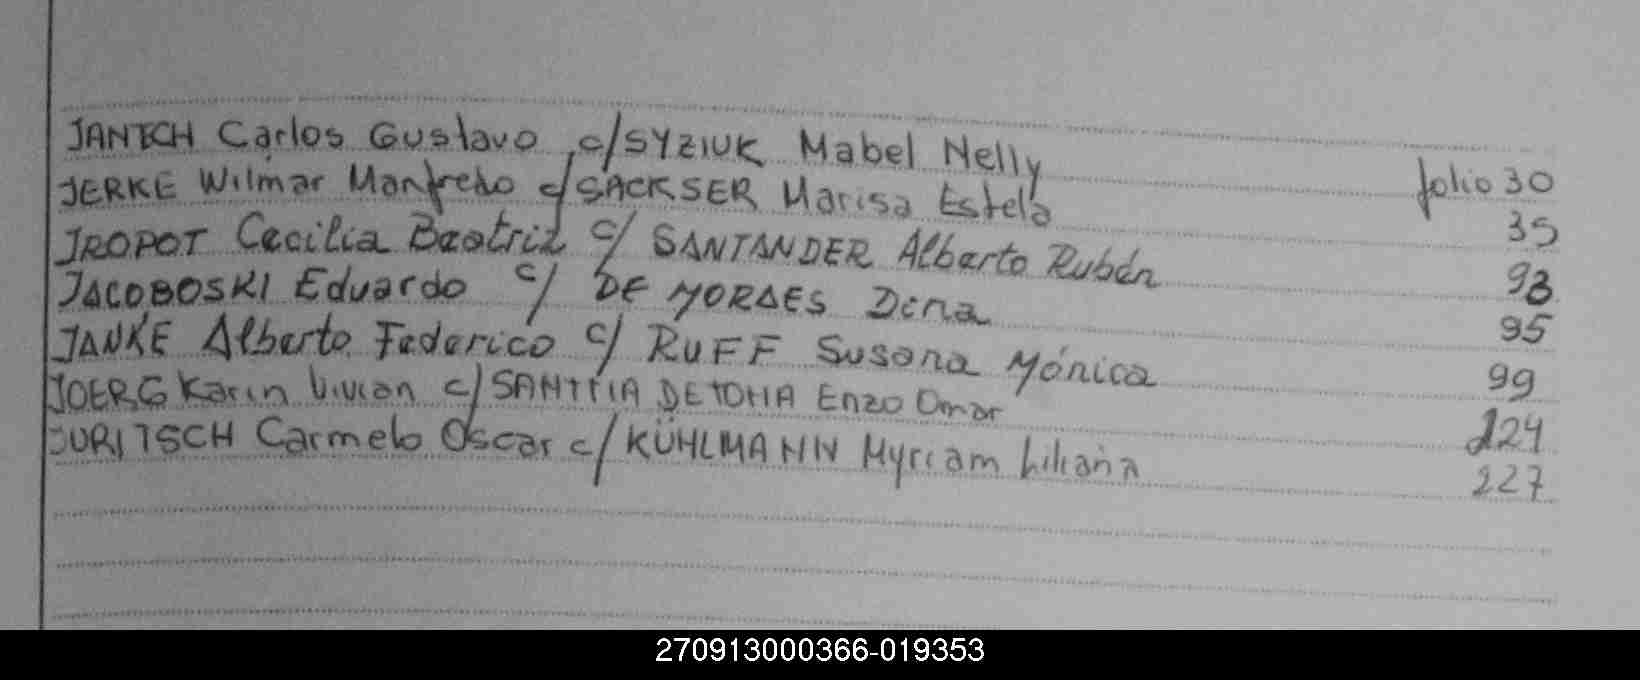 JANTCH Carlos Gustavo c/SYZIUK Mabel Nelly folio 30
JERKE Wilmar Manfredo c/SACKSER Marisa Estela 35
JROPOT Cecilia Beatriz c/ SANTANDER Alberto Rubén 93
JACOBOSKI Eduardo c/ DE MORAES Dina 95
JANKE Alberto Federico c/ RUFF Susana Mónica 99
JOERG Karin Vivian c/ DETONA Enzo Omar 124
JURITSCH Carmelo Oscar c/ KÜHLMANN Myriam Liliana 227
270913000366-019353